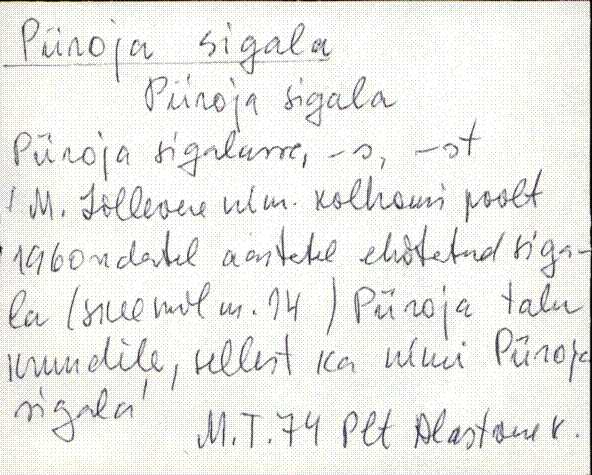 Püroja sigala
Püroja sigala
Püroja sigalasse, -s, -st
' M. Lillevere nim. kolhoosi poolt
1960ndatel aastatel ehitatud siga-
la (skeemil nr. 14) Püroja talu
krundile, sellest ka nimi Püroja
sigala'
M.T. 74 Plt Alastvere k.